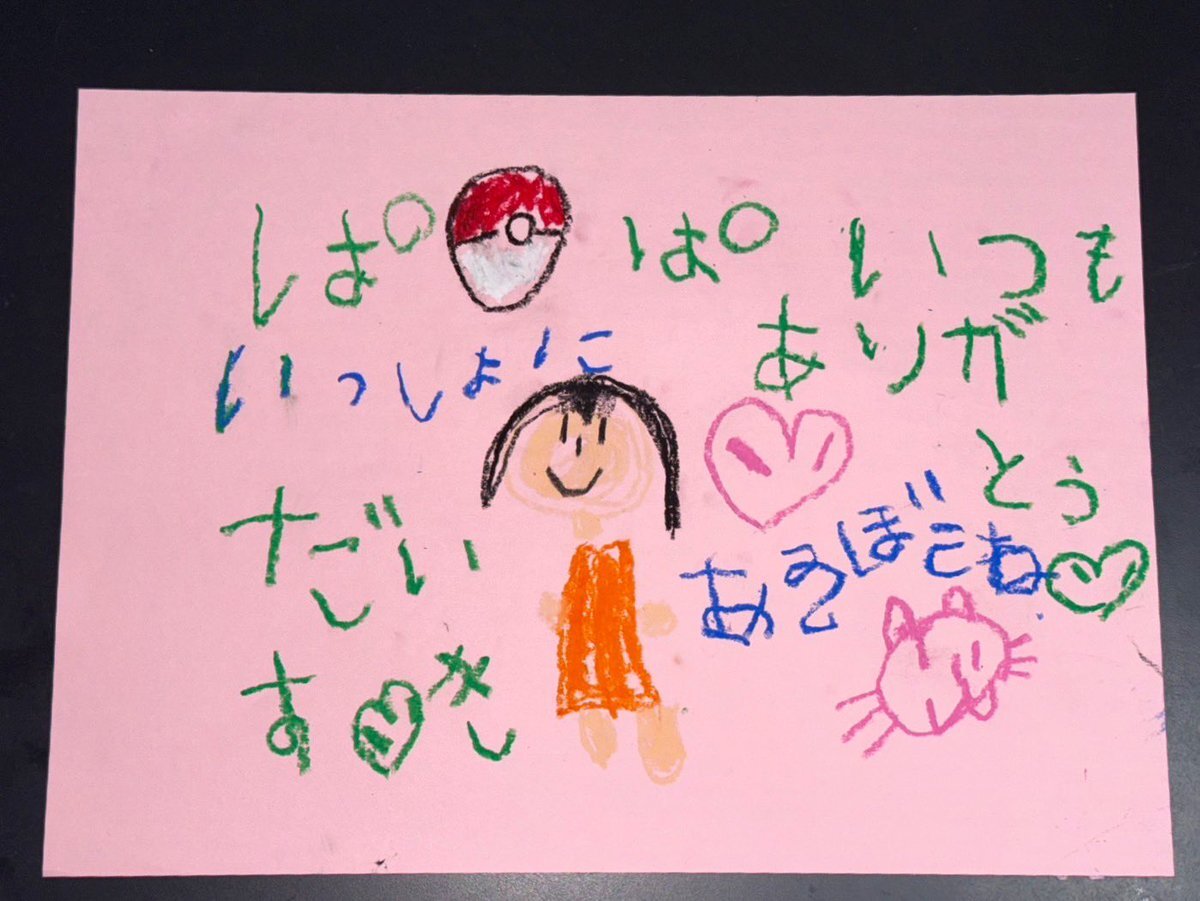 ぱ ぱ いつも
ありが
とう
だい
すき
いっしょに
あるぼこね